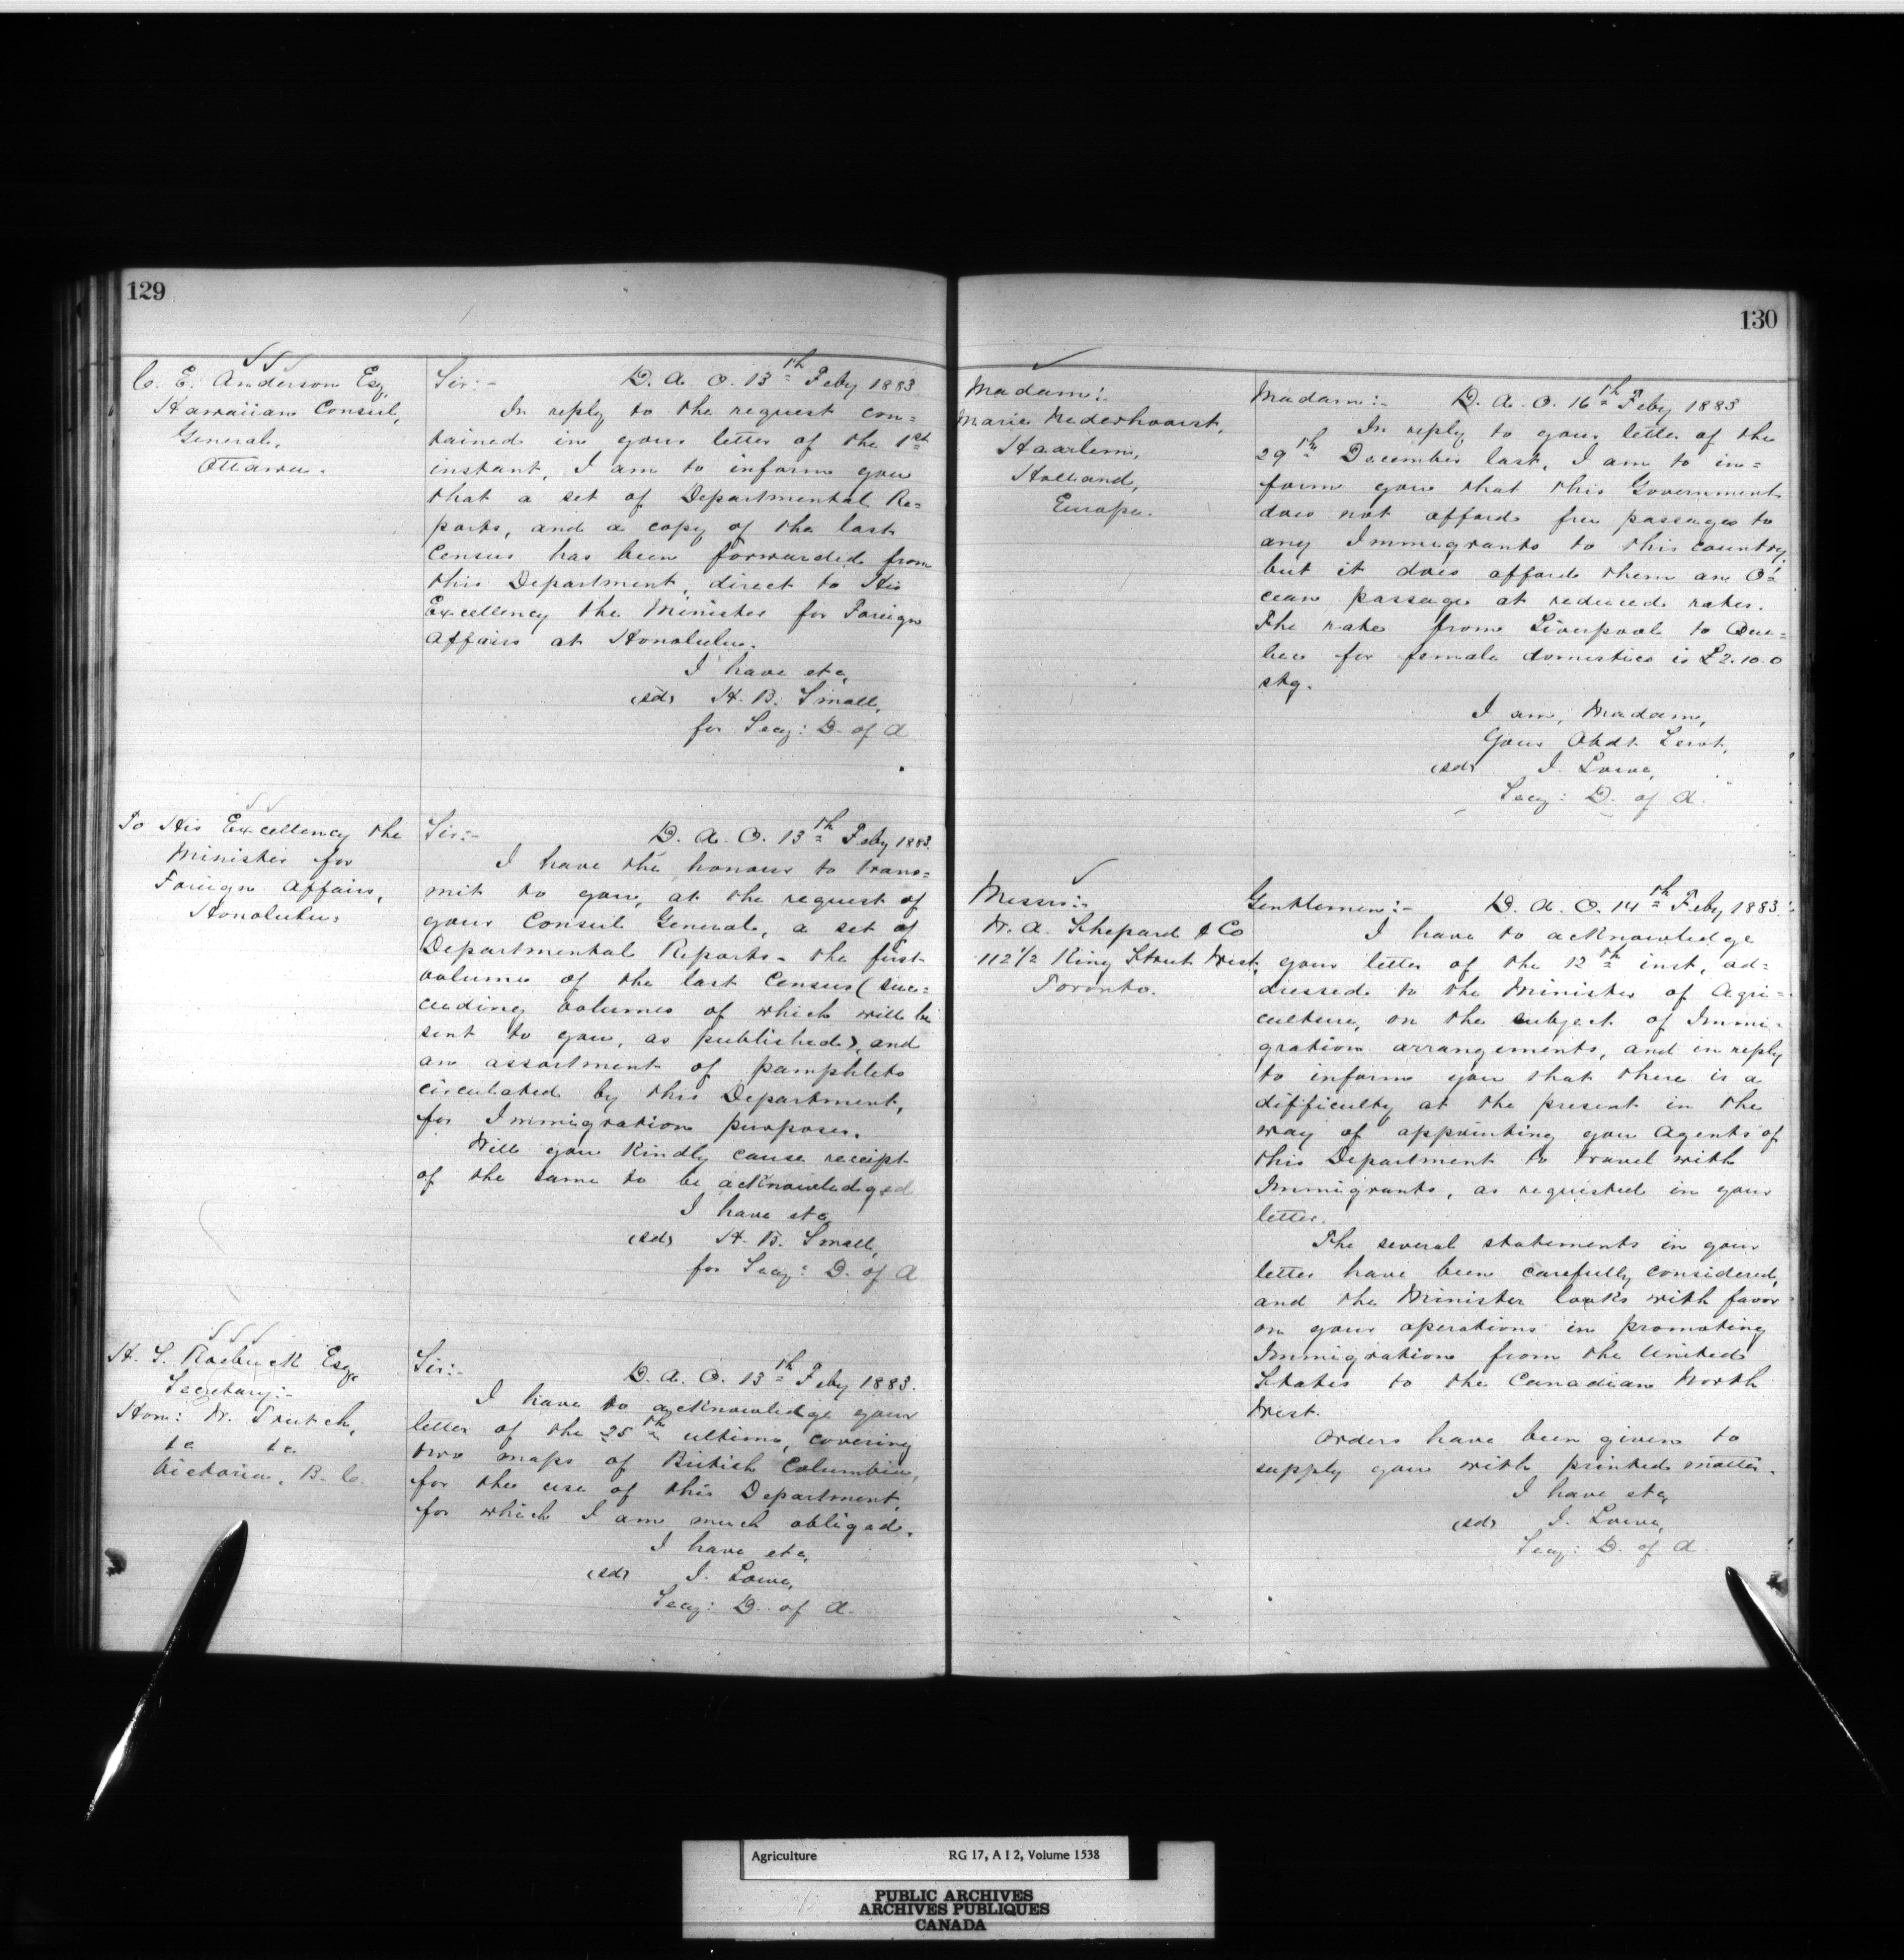 129
C. E. Anderson Esq,
Hawaiian Consul,
General,
Ottawa.
Sir:- D. A. O. 13th Feby 1883
In reply to the request con=
tained in your letter of the 1st
instant, I am to inform you
that a set of Departmental Re=
ports, and a copy of the last
Census has been forwarded from
this Department, direct to His
Excellency the Minister for Foreign
Affairs at Honolulu.
I have etc,
(sd) H. B. Small,
for Secy: D. of A
To His Excellency the
Minister for
Foreign Affairs,
Honolulu=
Sir:- D. A. O. 13th Feby 1883.
I have the honour to trans=
mit to you, at the request of
your Consul General, a set of
Departmental Reports - the first
volume of the last Census (suc=
ceeding volumes of which will be
sent to you, as published), and
an assortment of pamphlets
circulated by this Department,
for Immigration purposes.
Will you kindly cause receipt
of the same to be acknowledged
I have etc
(sd) H. B. Small,
for Secy: D. of A
H. S. Roebuck Esqr
Secretary:-
Hon: W. Trutch,
&c &c
Victoria, B. C.
Sir:- D. A. O. 13th Feby 1883.
I have to acknowledge your
letter of the 25th ultimo, covering
two maps of British Columbia,
for the use of this Department,
for which I am much obliged.
I have etc,
(sd) J. Lowe,
Secy: D. of A.
130
Madam:
Marie Nederhoorst,
Haarlem,
Holland,
Europe.
Madam:- D. A. O. 16th Feby 1883
In reply to your letter of the
29th December last, I am to in=
form you that this Government
does not afford free passages to
any Immigrants to this country,
but it does afford them an O=
cean passage at reduced rates.
The rate from Liverpool to Que=
bec for female domestics is £2.10.0
stg.
I am, Madam,
Your Obdt Servt,
(sd) J. Lowe,
Secy: D. of A.
Messrs:-
W. A. Shepard & Co
112½ King Street West,
Toronto.
Gentlemen:- D. A. O. 14th Feby 1883.
I have to acknowledge
your letter of the 12th inst, ad=
dressed to the Minister of Agri=
culture, on the subject of Immi=
gration arrangements, and in reply
to inform you that there is a
difficulty at the present in the
way of appointing you Agents of
this Department to travel with
Immigrants, as requested in your
letter.
The several statements in your
letter have been carefully considered,
and the Minister looks with favor
on your operations in promoting
Immigration from the United
States to the Canadian North
West.
Orders have been given to
supply you with printed matter.
I have etc,
(sd) J. Lowe,
Secy: D. of A.
Agriculture RG 17, A I 2, Volume 1538
PUBLIC ARCHIVES
ARCHIVES PUBLIQUES
CANADA